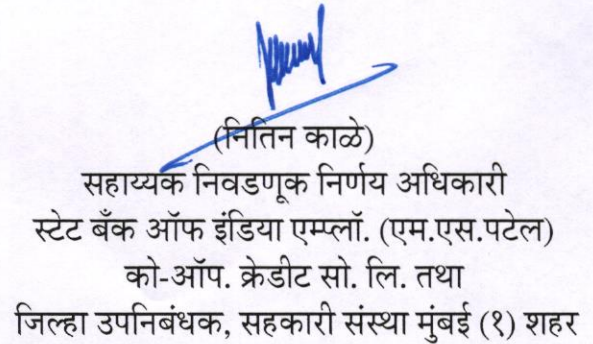 (नितिन काळे)
सहाय्यक निवडणूक निर्णय अधिकारी
स्टेट बँक ऑफ इंडिया एम्प्लॉ. (एम.एस.पटेल)
को-ऑप. क्रेडीट सो. लि. तथा
जिल्हा उपनिबंधक, सहकारी संस्था मुंबई (१) शहर